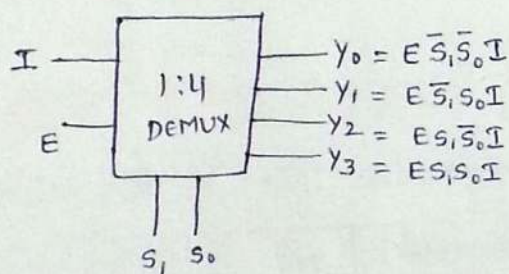 I
E
1:4
DEMUX
S₁ S₀
Y₀ = E S̅₁ S̅₀ I
Y₁ = E S̅₁ S₀ I
Y₂ = E S₁ S̅₀ I
Y₃ = E S₁ S₀ I